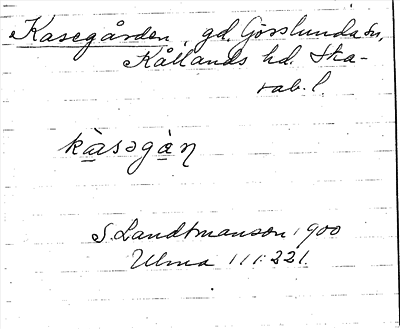 Kasegården, gd, Gösslunda sn,
Kållands hd. Ska-
rab. l.
kàsəgàṇ
S. Landtmanson 1900
Ulma 111:221.